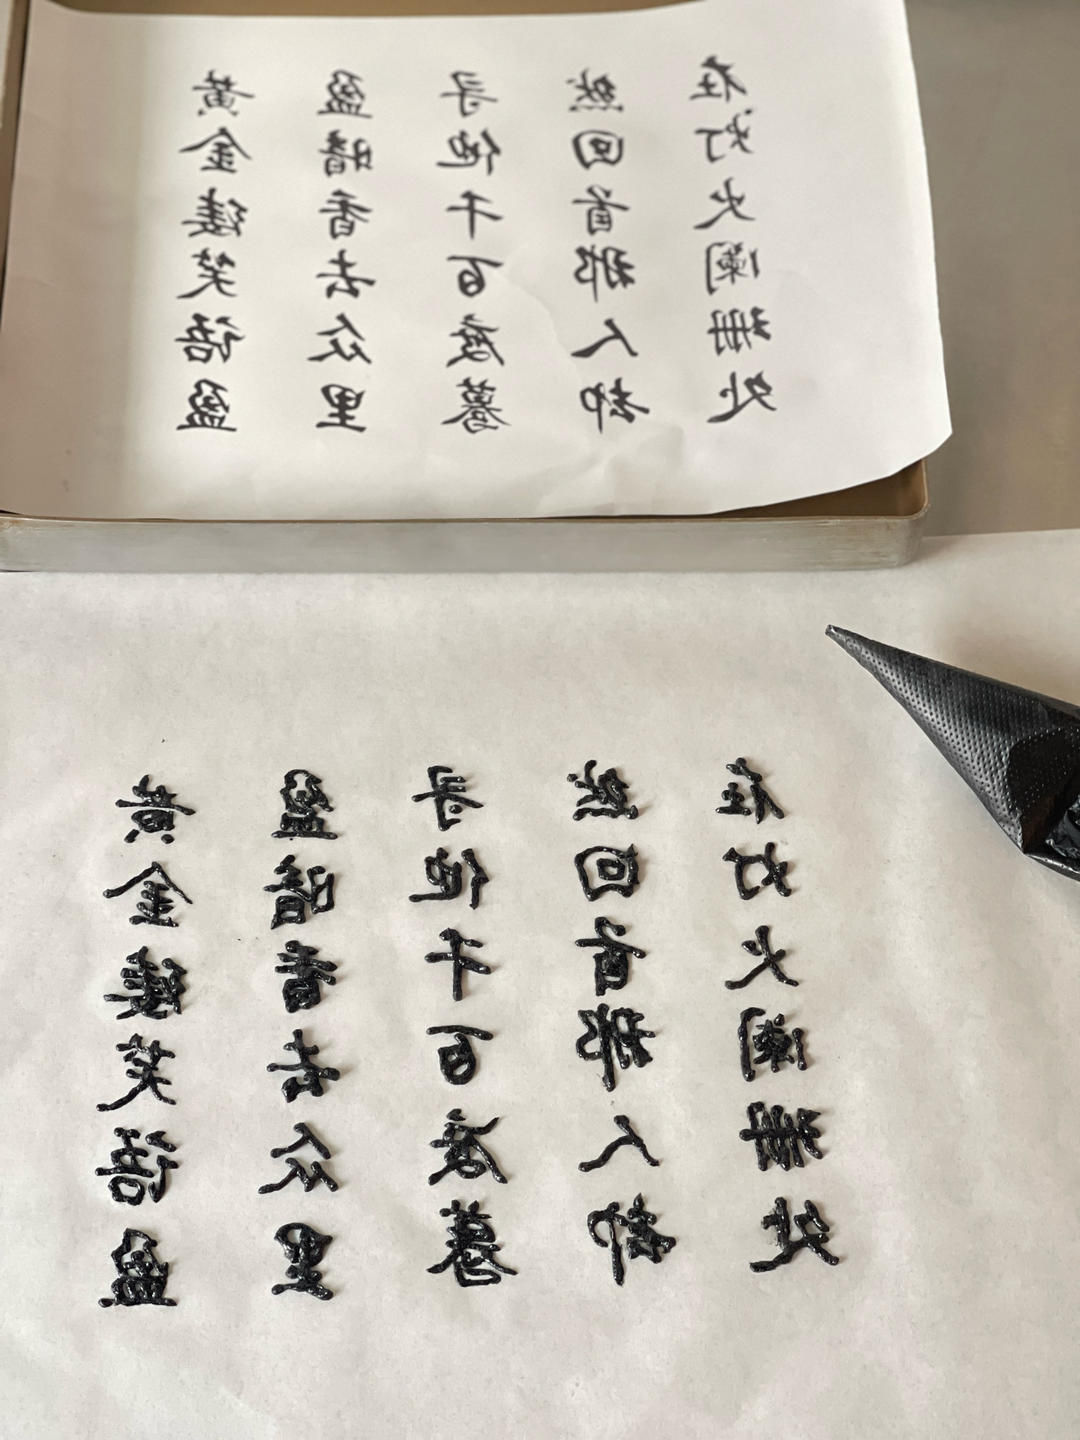 黄金缕笑语盈
盈暗香去众里
寻他千百度蓦
然回首那人却
在灯火阑珊处
黄金缕笑语盈
盈暗香去众里
寻他千百度蓦
然回首那人却
在灯火阑珊处